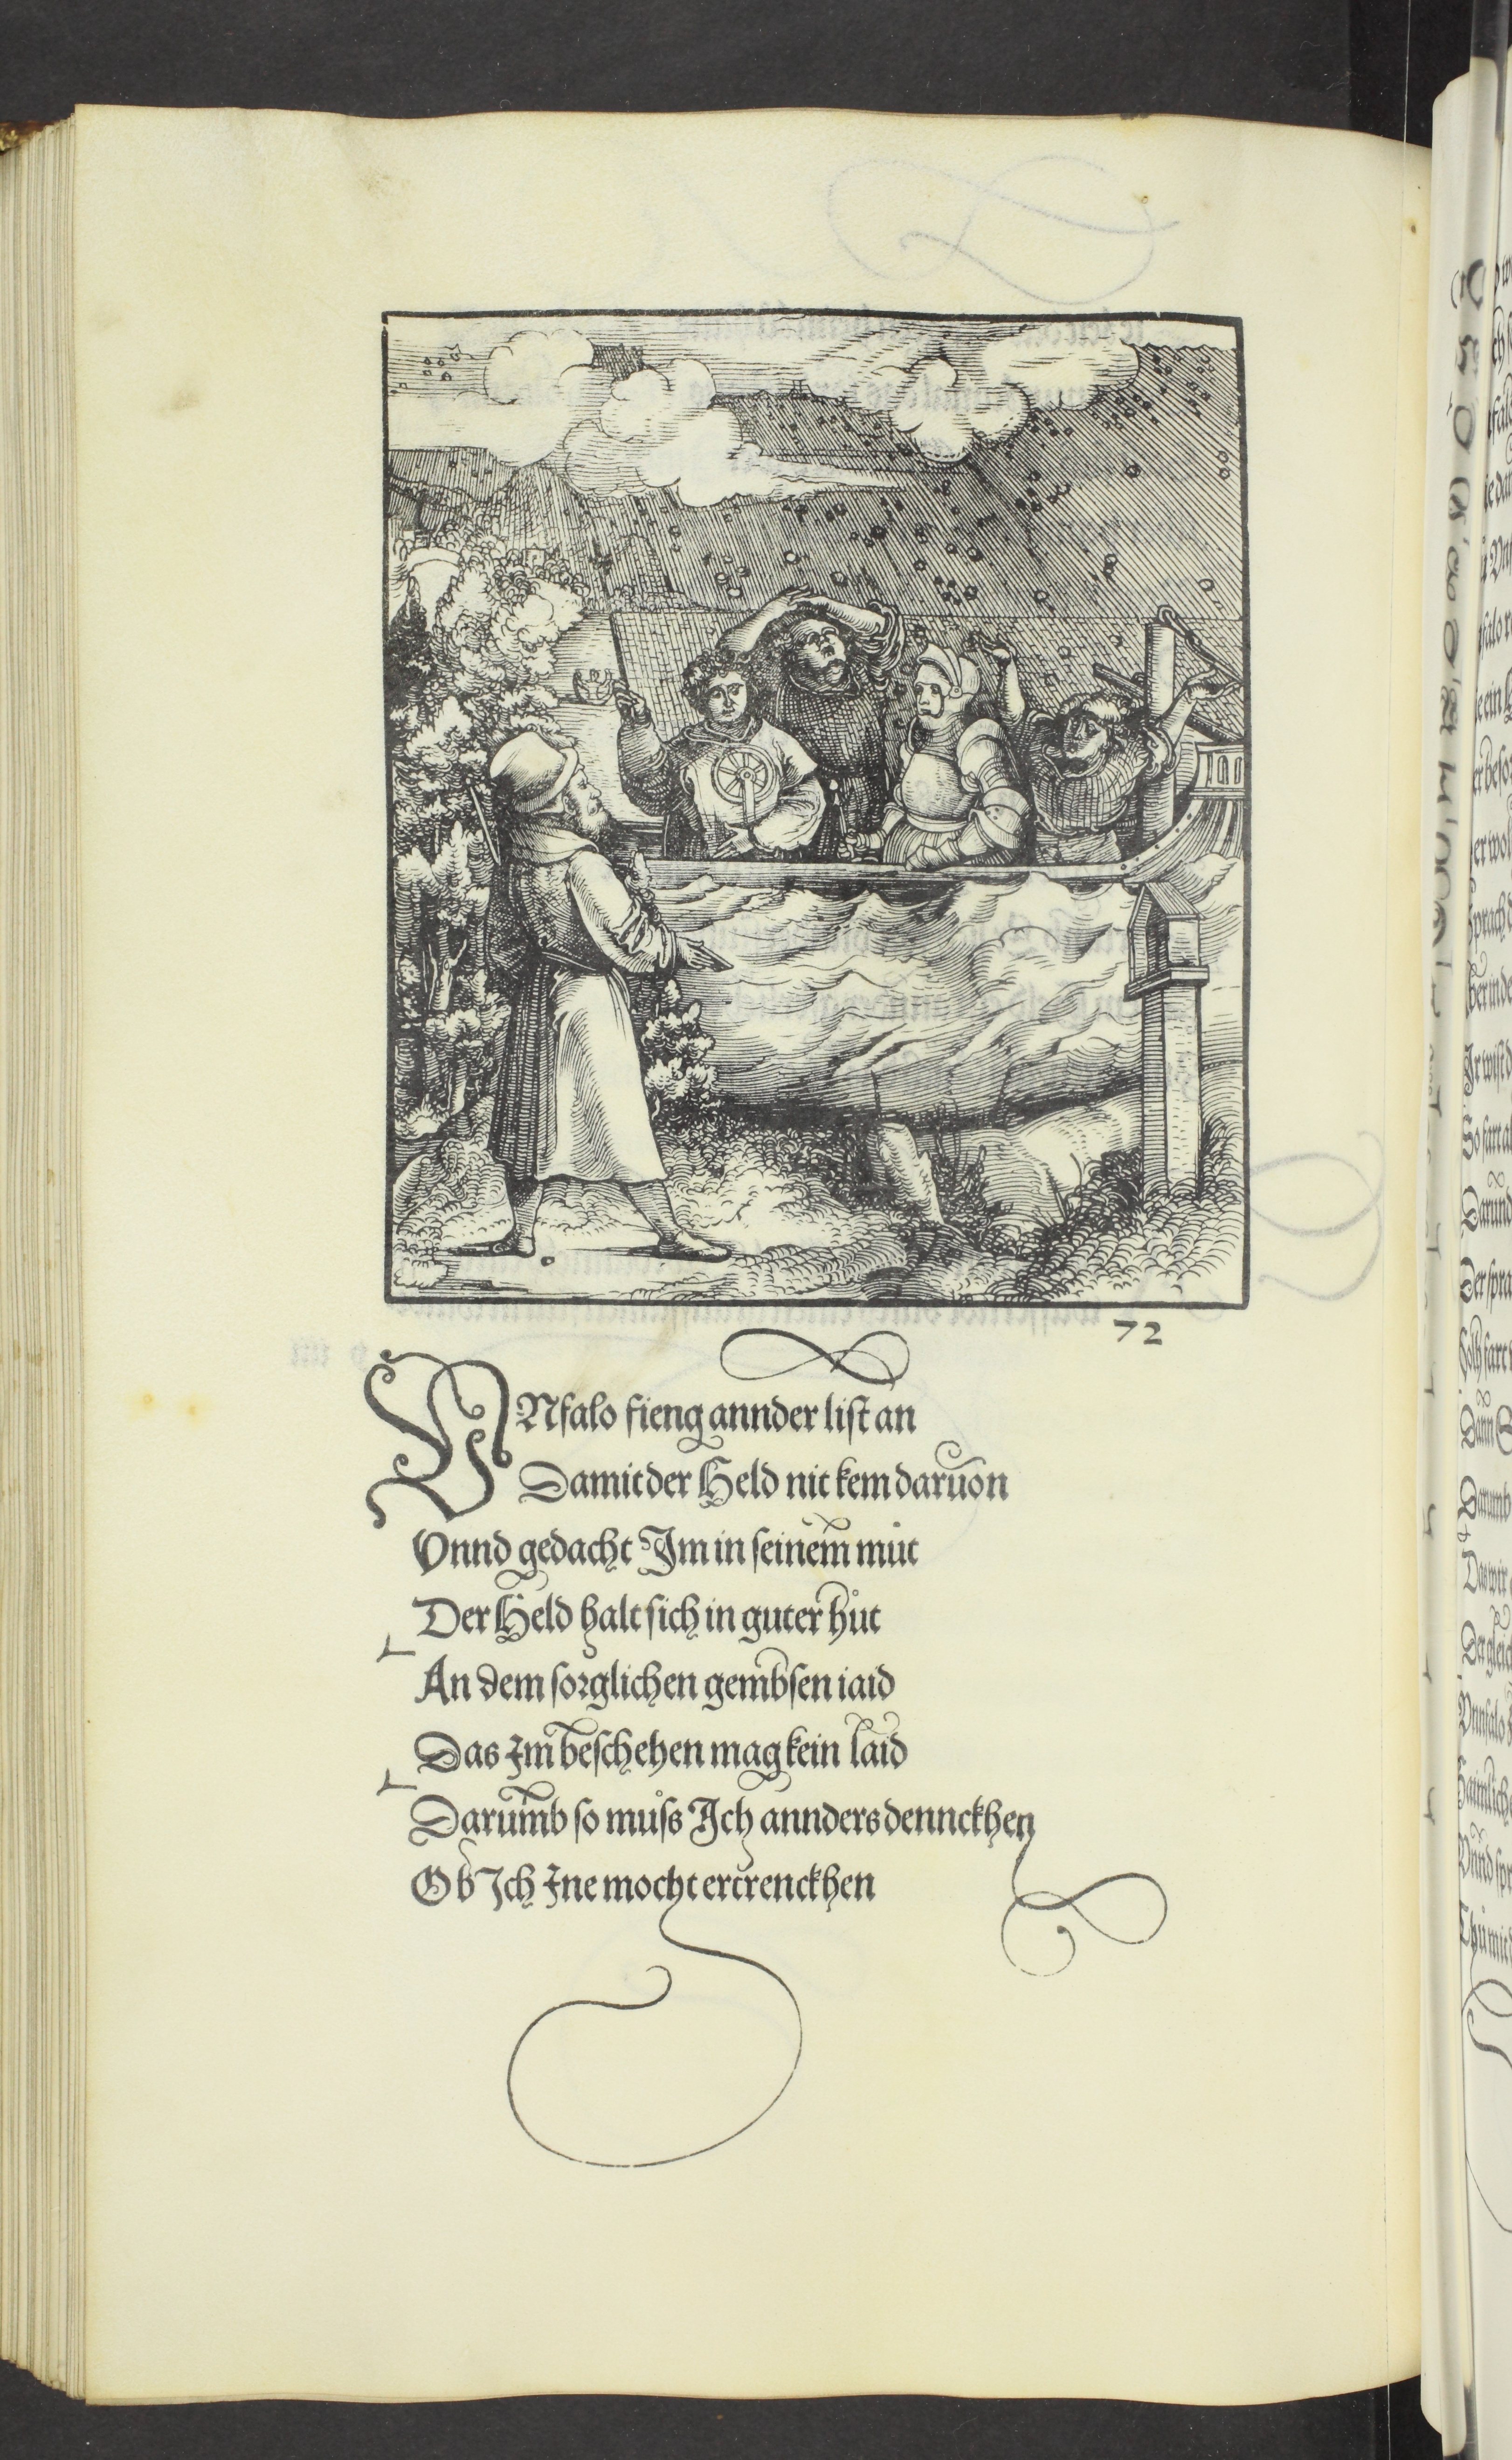 72
VNfalo fieng annder list an
Damit der Held nit kem daruon
Vnnd gedacht Im in seinem mut
Der Held halt sich in guter hůt
An dem sorglichen gembsen iaid
Das Im beschehen mag kein laid
Darumb so můss Ich annders dennckhen
Ob Ich Ine mocht ertrenckhen